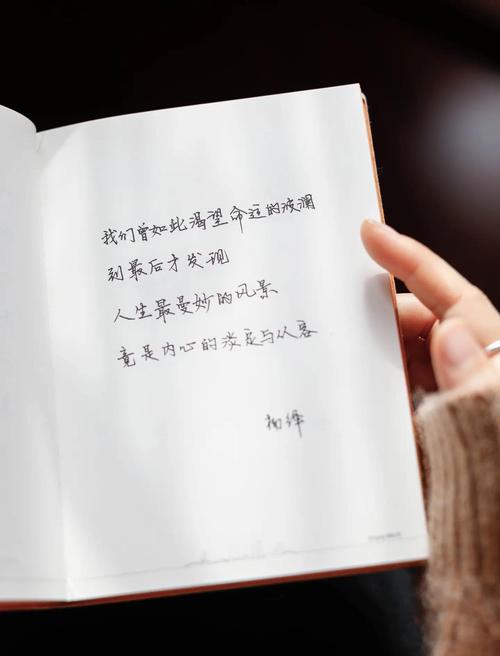 我们曾如此渴望命运的波澜
到最后才发现
人生最曼妙的风景
竟是内心的淡定与从容
杨绛